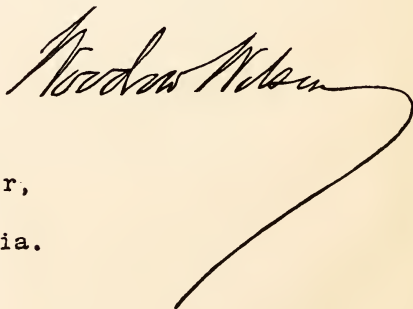 Woodrow Wilson
r,
ia.